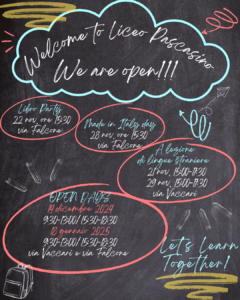 Welcome to Liceo Pascasino
We are open!!!
Libro Party
22 nov. ore 15:30
via Falcone
Made in Italy day
28 nov. ore 15:30
via Falcone
A lezione
di lingue straniere
21 nov. 15:00-17:30
29 nov. 15:00-17:30
via Vaccari
OPEN DAYS
14 dicembre 2024
9:30-13:00/ 15:30-19:30
18 gennaio 2025
9:30-13:00/ 15:30-19:30
via Vaccari e via Falcone
Let's Learn
Together!